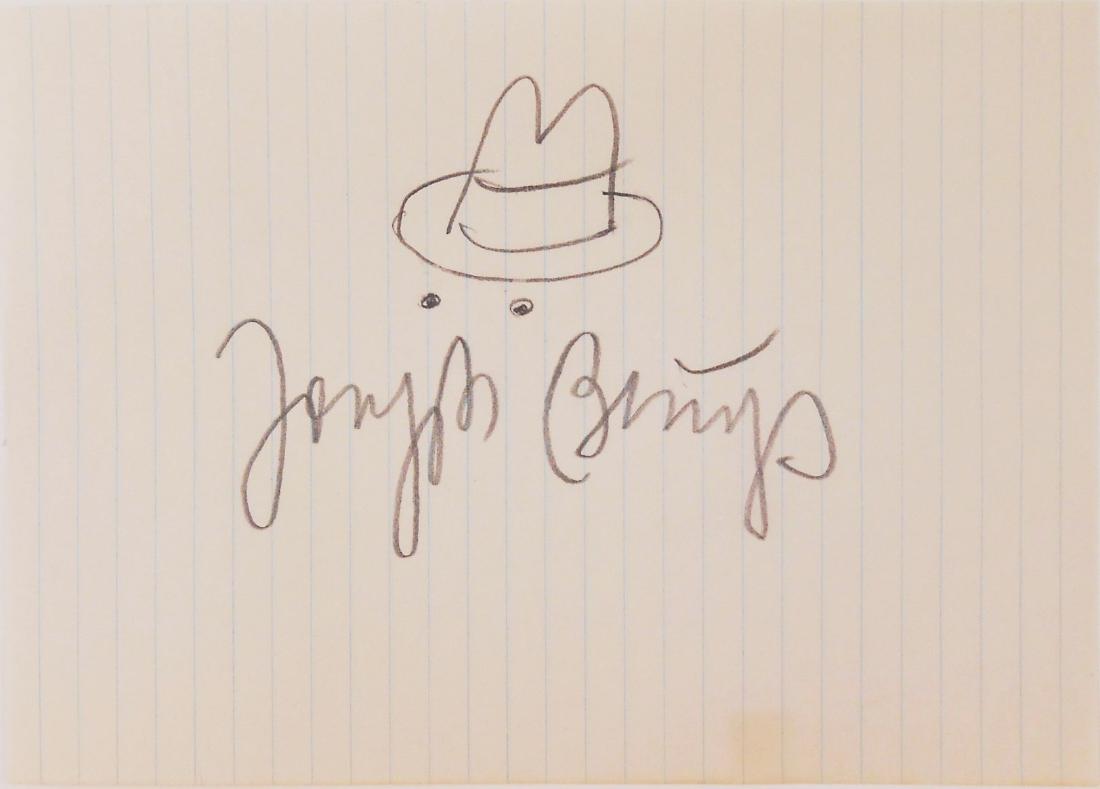 Joseph Beuys